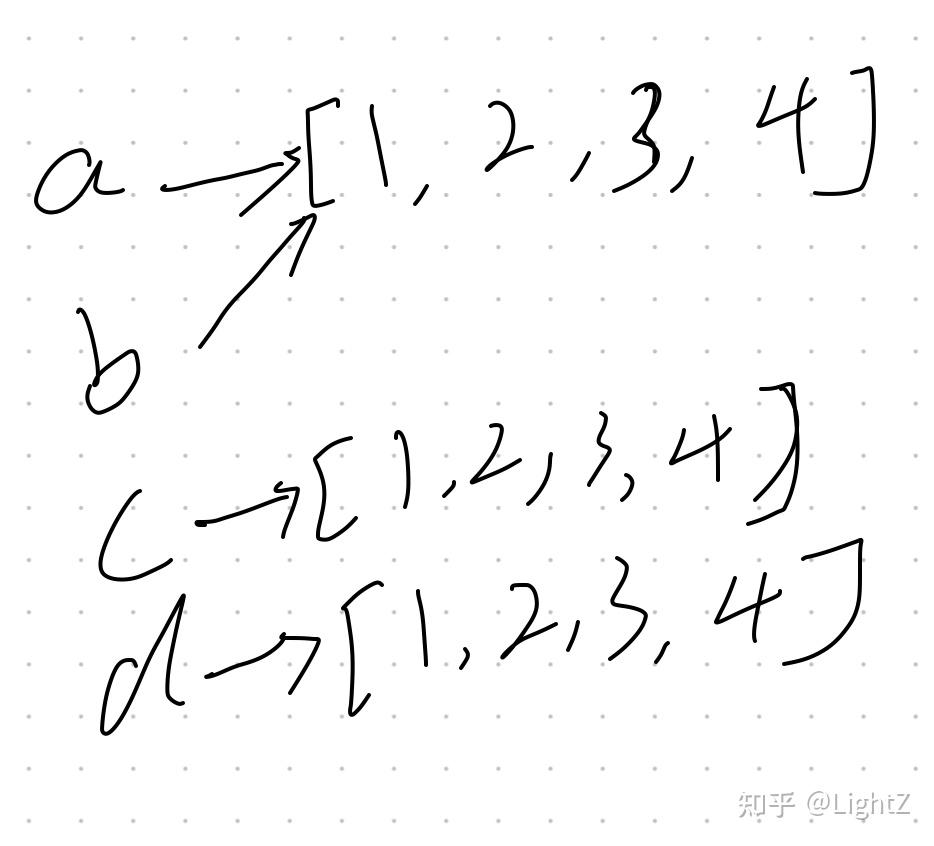 a → [1, 2, 3, 4]
b
c → [1, 2, 3, 4]
d → [1, 2, 3, 4]
知乎 @LightZ